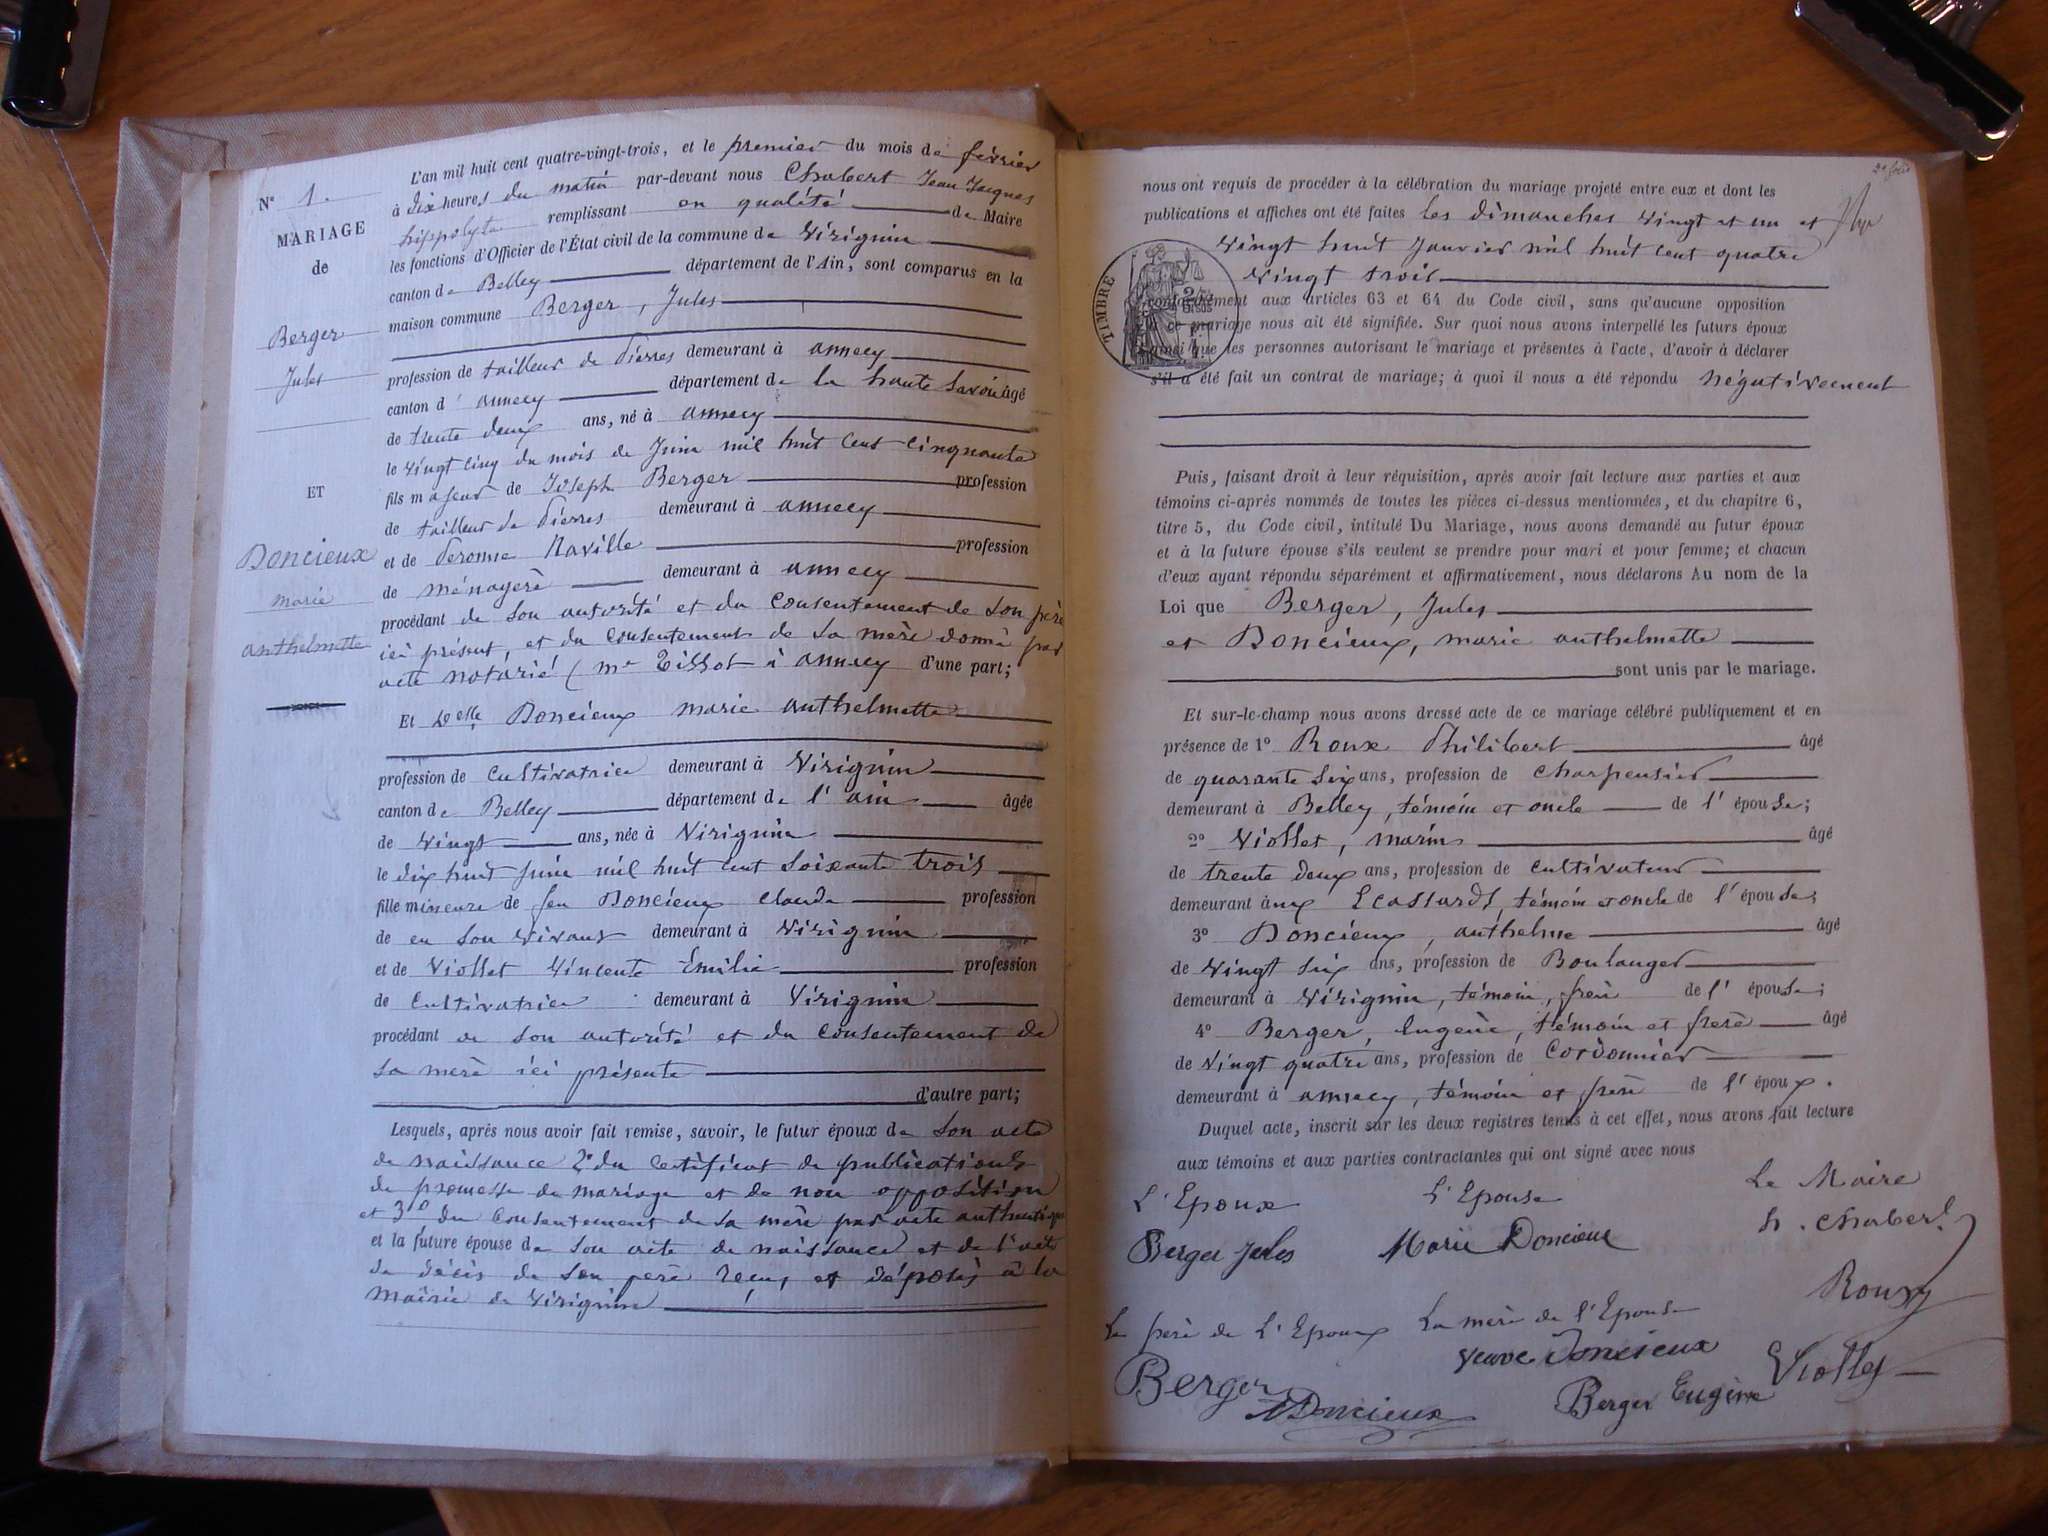 N° 1.
MARIAGE
de
Berger
Jules
ET
Doncieux
marie
anthelmette
L'an mil huit cent quatre-vingt-trois, et le premier du mois de février
à dix heures du matin par-devant nous Chabert Jean Jacques
hippolyte remplissant en qualité de Maire
les fonctions d'Officier de l'État civil de la commune de Virignin
canton de Belley département de l'Ain, sont comparus en la
maison commune Berger, Jules
profession de tailleur de Pierres demeurant à annecy
canton d' annecy département de la haute Savoie âgé
de trente deux ans, né à annecy
le vingt cinq du mois de Juin mil huit cent cinquante
fils majeur de Joseph Berger profession
de tailleur de Pierres demeurant à annecy
et de Peronne Naville profession
de ménagère demeurant à annecy
procédant de son autorité et du consentement de son père
ici présent, et du consentement de sa mère donné par
acte notarié (me Tissot à annecy d'une part;
Et Delle Doncieux marie anthelmette
profession de Cultivatrice demeurant à Virignin
canton de Belley département de l'ain âgée
de vingt ans, née à Virignin
le dix huit juin mil huit cent soixante trois
fille mineure de feu Doncieux claude profession
de en son vivant demeurant à Virignin
et de Viollet Vincente Emilie profession
de Cultivatrice demeurant à Virignin
procédant de son autorité et du consentement de
sa mère ici présente
d'autre part;
Lesquels, après nous avoir fait remise, savoir, le futur époux de son acte
de naissance 2° du certificat de publications
de promesse de mariage et de non opposition
et 3° du consentement de sa mère par acte authentique
et la future épouse de son acte de naissance et de l'acte
de décès de son père reçus et déposés à la
mairie de Virignin
2e folio
nous ont requis de procéder à la célébration du mariage projeté entre eux et dont les
publications et affiches ont été faites les dimanches vingt et un et
vingt huit Janvier mil huit cent quatre
vingt trois
TIMBRE
conformément aux articles 63 et 64 du Code civil, sans qu'aucune opposition
à ce mariage nous ait été signifiée. Sur quoi nous avons interpellé les futurs époux
ainsi que les personnes autorisant le mariage et présentes à l'acte, d'avoir à déclarer
s'il a été fait un contrat de mariage; à quoi il nous a été répondu négativement
Puis, faisant droit à leur réquisition, après avoir fait lecture aux parties et aux
témoins ci-après nommés de toutes les pièces ci-dessus mentionnées, et du chapitre 6,
titre 5, du Code civil, intitulé Du Mariage, nous avons demandé au futur époux
et à la future épouse s'ils veulent se prendre pour mari et pour femme; et chacun
d'eux ayant répondu séparément et affirmativement, nous déclarons Au nom de la
Loi que Berger, Jules
et Doncieux, marie anthelmette
sont unis par le mariage.
Et sur-le-champ nous avons dressé acte de ce mariage célébré publiquement et en
présence de 1° Roux Philibert âgé
de quarante six ans, profession de charpentier
demeurant à Belley, témoin et oncle de l'épouse;
2° Viollet, marin âgé
de trente deux ans, profession de cultivateur
demeurant aux Ecassards, témoin et oncle de l'épouse;
3° Doncieux, anthelme âgé
de vingt six ans, profession de Boulanger
demeurant à Virignin, témoin, frère de l'épouse;
4° Berger, Eugène, témoin et frère âgé
de vingt quatre ans, profession de Cordonnier
demeurant à annecy, témoin et frère de l'époux.
Duquel acte, inscrit sur les deux registres tenus à cet effet, nous avons fait lecture
aux témoins et aux parties contractantes qui ont signé avec nous
L'Epoux L'Epouse Le Maire
Berger Jules Marie Doncieux h. Chabert
Roux
Le père de L'Epoux La mère de l'Epouse
Berger veuve Doncieux Viollet
Doncieux Berger Eugène